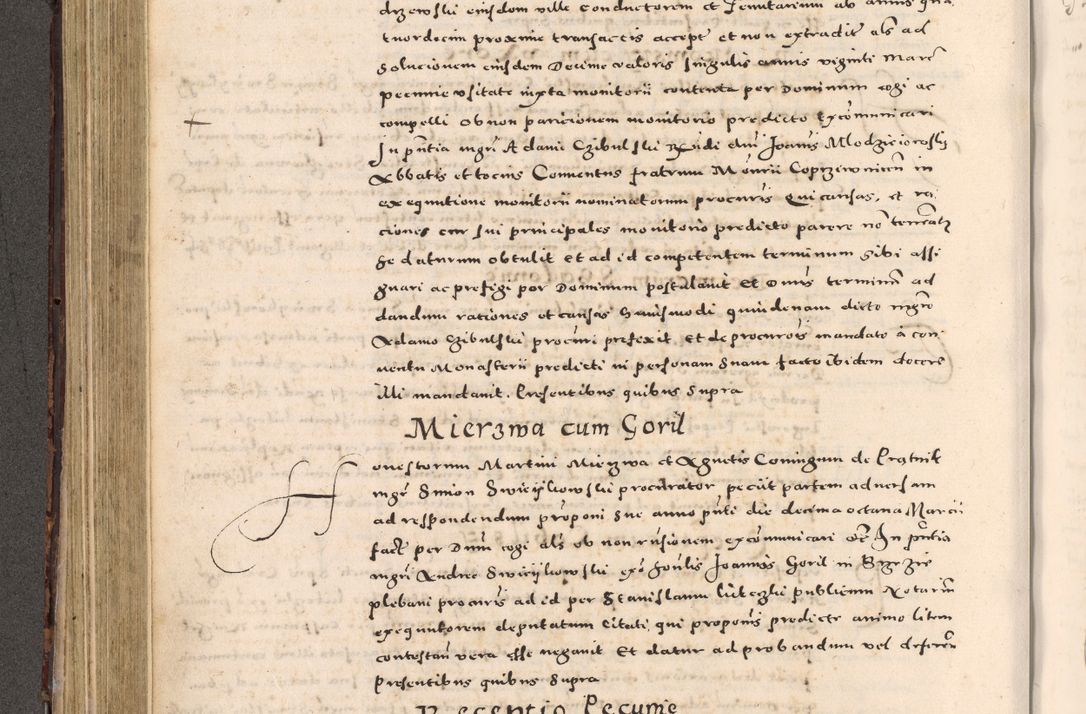 drzewski eiusdem ville conductorem et Tenutarium ab annis qua
tuordecim proxime transactis accept et non extradit als ad
Solucionem eiusdem Decime valoris singulis annis viginti Marc
pecunie vsitate iuxta monitorii contenta per Dominum cogi ac
compelli ob non paricionem monitorio predicto Excomunicari
In pntia mgri Adami Czibulski Rndi dni Joanis Mlodzieiowski
Abbatis et tocius Conuentus fratrum Monrii Copriwnicen in
exequutione monitorii nominatorum procuris Qui causas, et ra
ciones cur sui principales monitorio predicto parere non teneantur
se daturum obtulit Et ad id competentem terminum sibi assi
gnari ac prefigi per Dominum postulauit Et Dnus terminum ad
dandum rationes et causas huiusmodi quindenam dicto mgro
Adamo Czibulski procuri prefexit, Et de procuris mandato a con
uentu Monasterii predicti in personam suam facto ibidem docere
illi mandauit. Presentibus quibus supra
Mierzwa cum Goril
Honestorum Martini Mierzwa et Agnetis Coniugum de
mgr Simon Swieijkowski procurator pecut partem aduersam
ad respondendum proponi sue anno pnti die decima octaua Marcii
fact per Dnm cogi als ob non rnsionem excomunicari etc In pntia
mgri Andree Swieijkowski exo honlis Joannis Goril in Brzezie
plebani procuris ad id per Stanislaum publicum Notarium
exequutorem deputatum Citati, qui proponis predicte animo litem
contestan vera esse negauit Et datur ad probandum vel deferen
Presentibus quibus supra
Receptio Pecunie